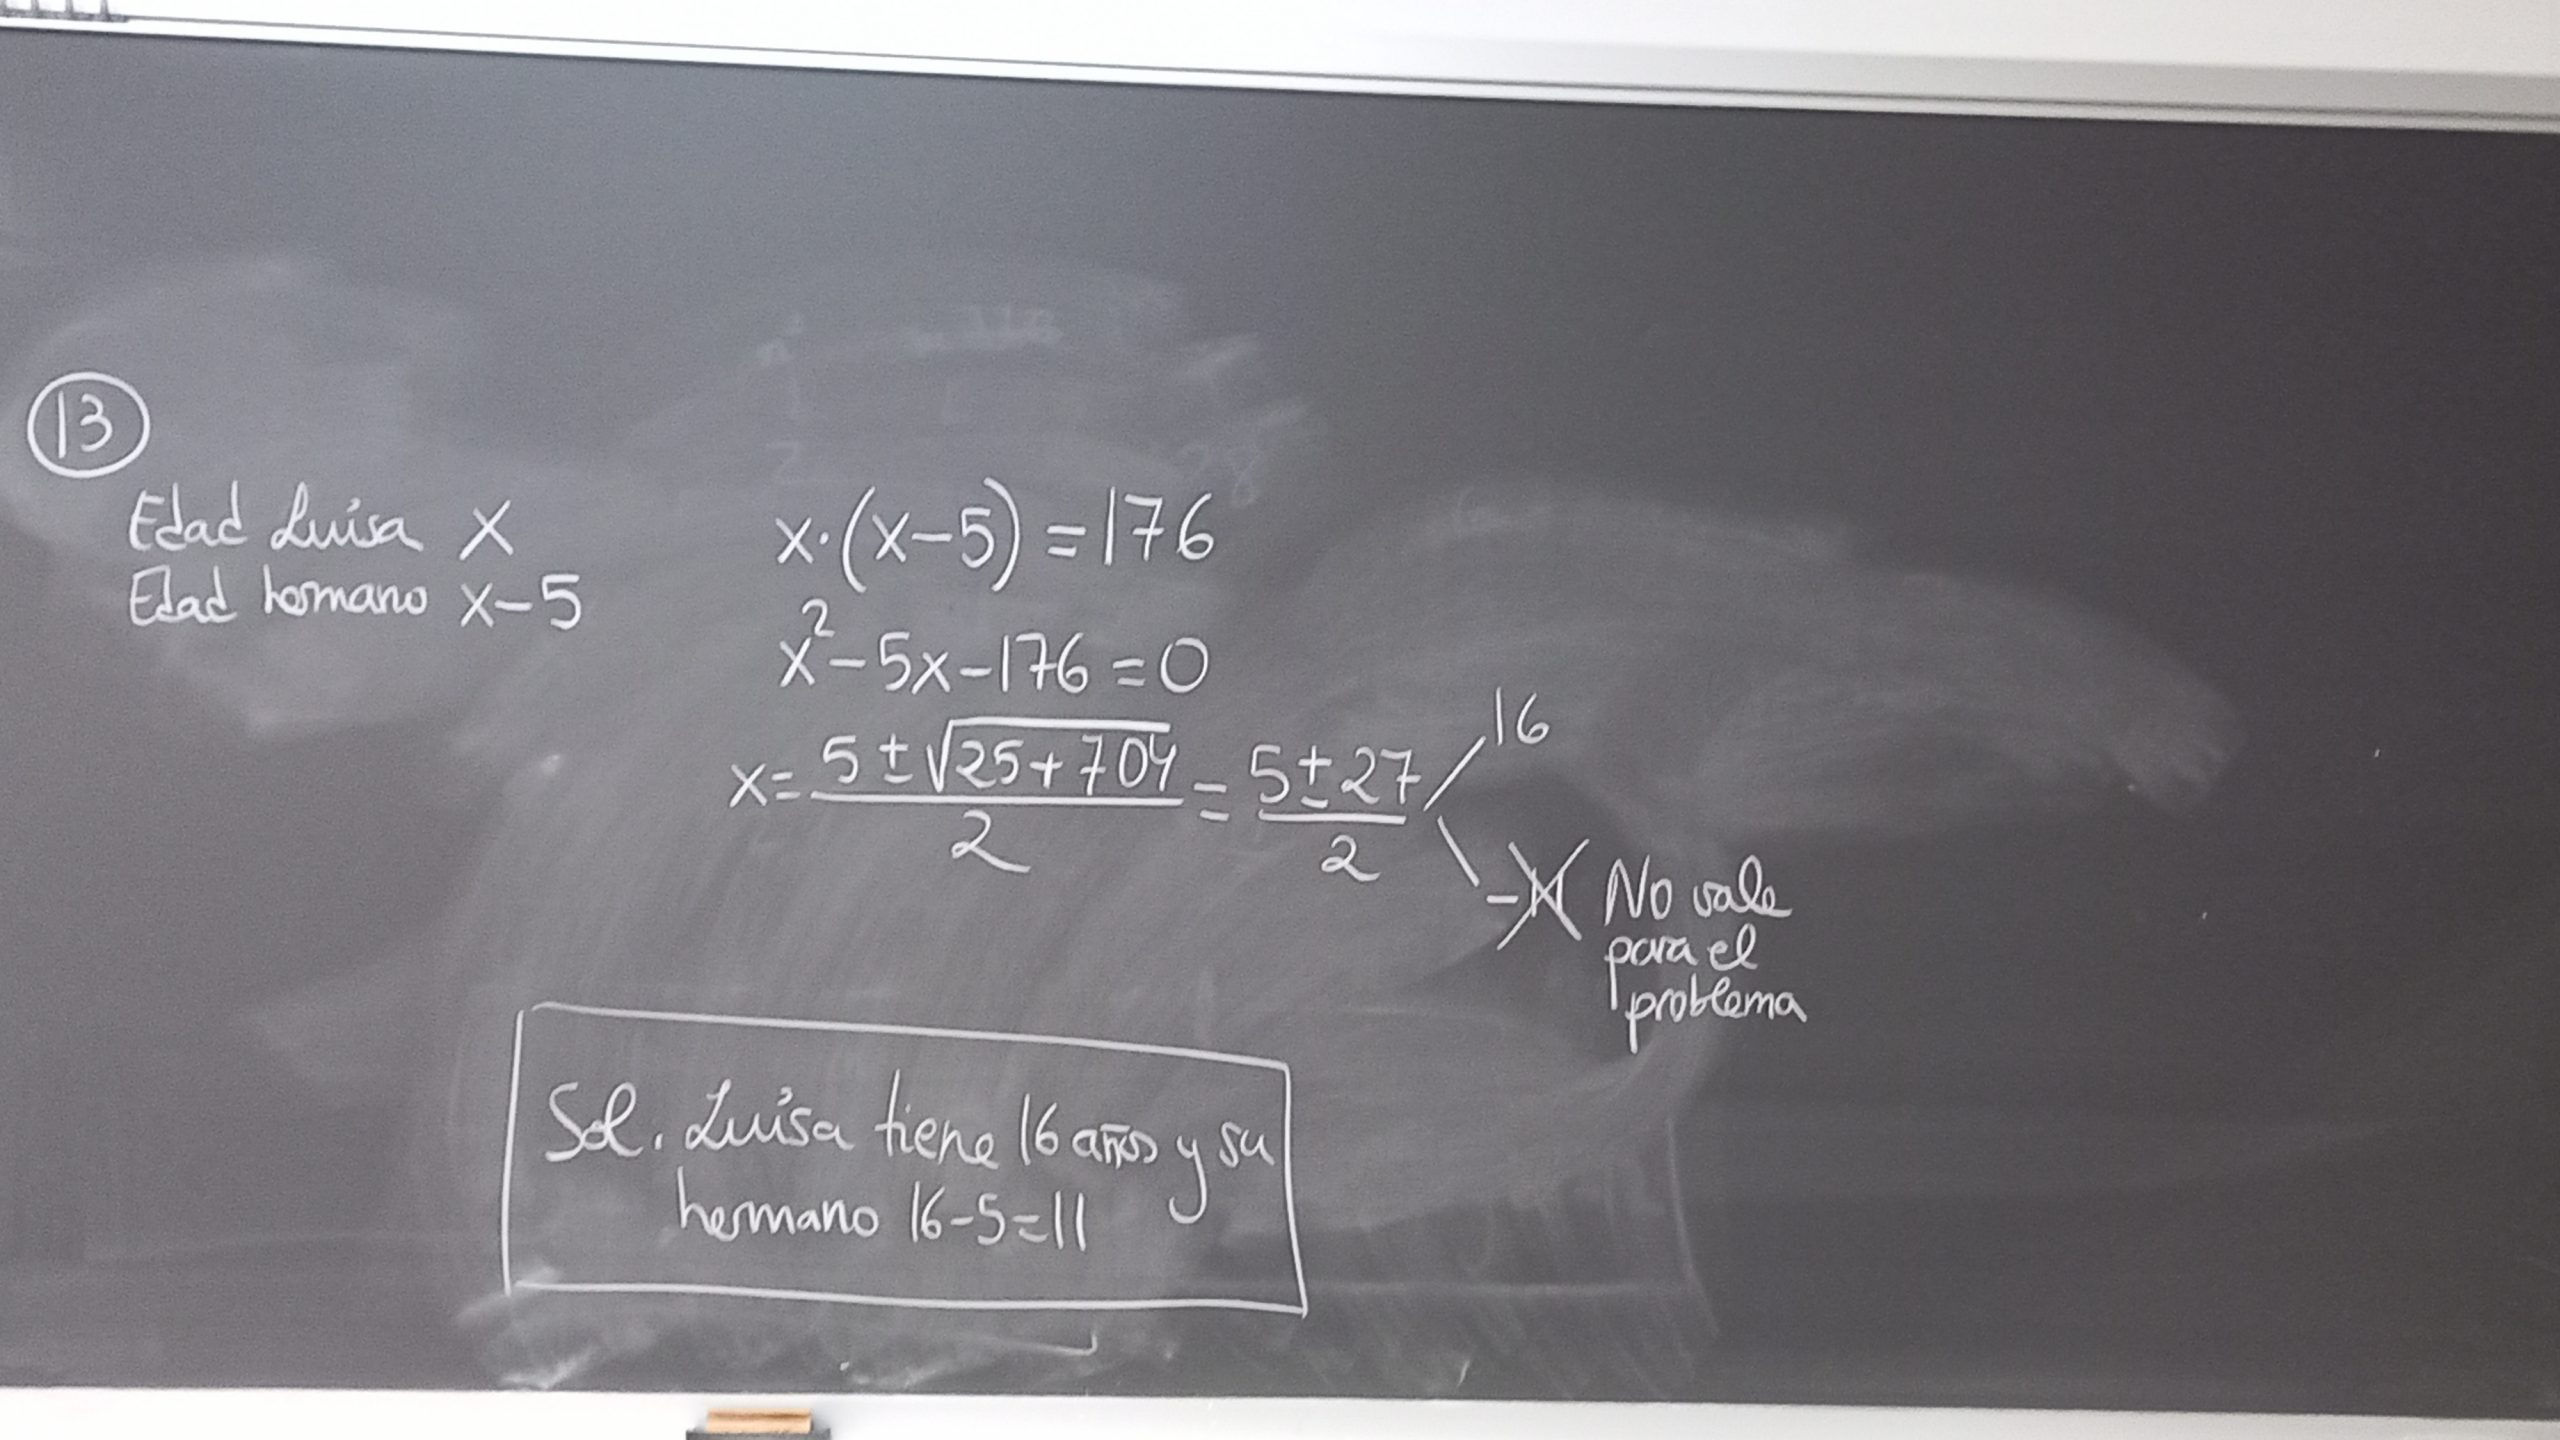 13
Edad Luisa x
Edad hermano x-5
x·(x-5)=176
x²-5x-176=0
x=(5±√(25+704))/2=(5±27)/2
16
-11 No vale
para el
problema
Sol. Luisa tiene 16 años y su
hermano 16-5=11